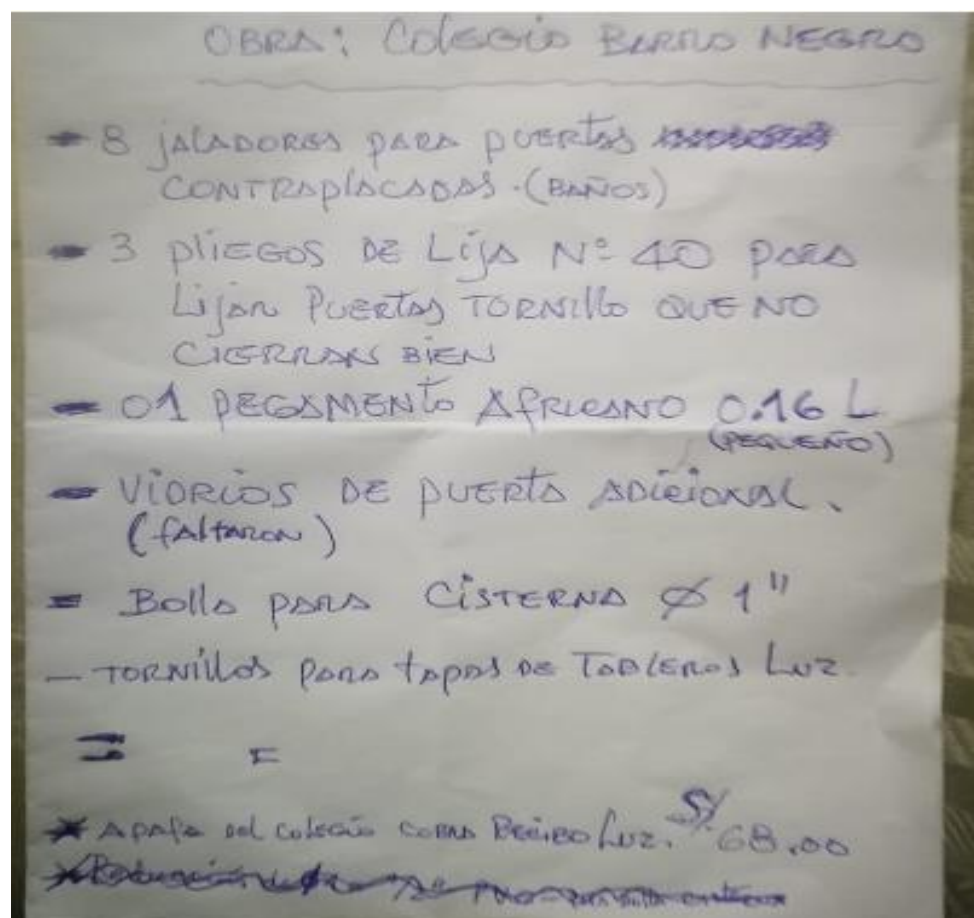 OBRA: Colegio Barrio Negro
- 8 jaladores para puertas
contraplacadas. (Baños)
- 3 pliegos de Lija Nº 40 para
Lijar Puertas Tornillo que no
cierran bien
- 01 pegamento Africano 0.16 L
(pequeño)
- Vidrios de puerta adicional.
(faltaron)
= Bolla para Cisterna Ø 1"
- Tornillos para tapas de Tableros Luz
= =
* Apafa del colegio cobra Recibo Luz. S/. 68.00